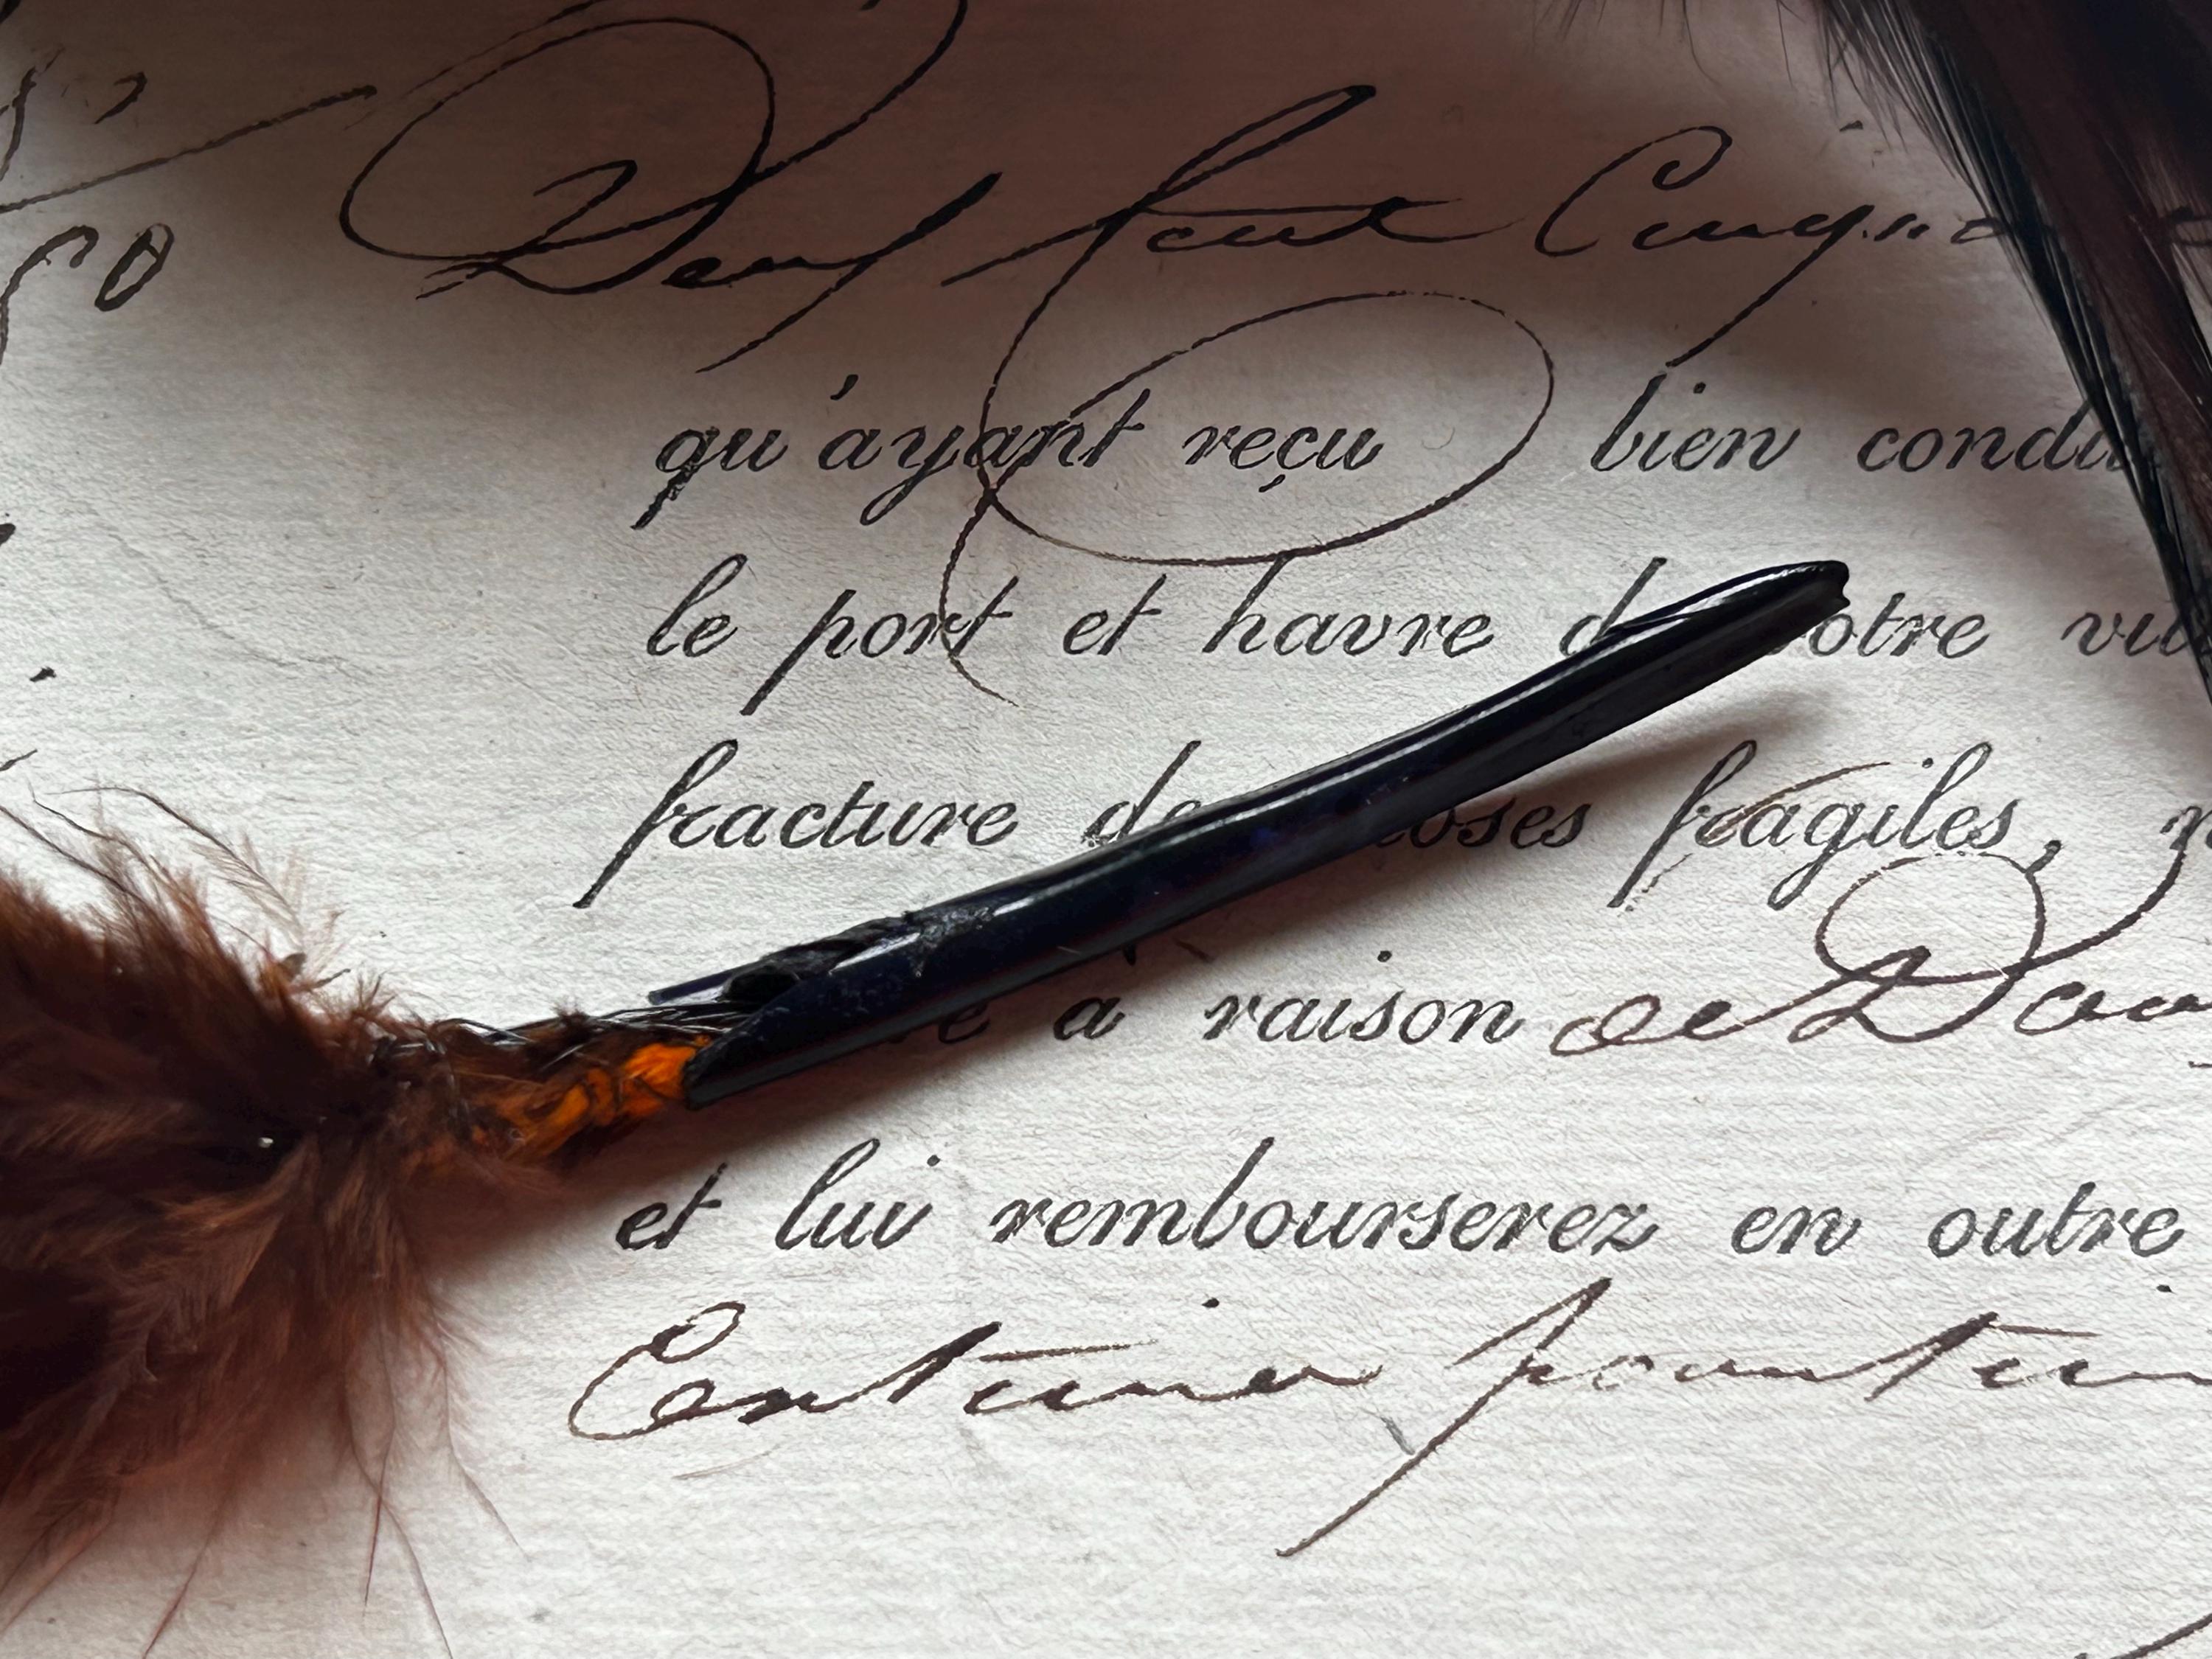 50 Neuf Cent Cinqua
qu'ayant reçu bien condi
le port et havre d otre vil
fracture de oses fragiles,
e a raison de Dou
et lui rembourserez en outre